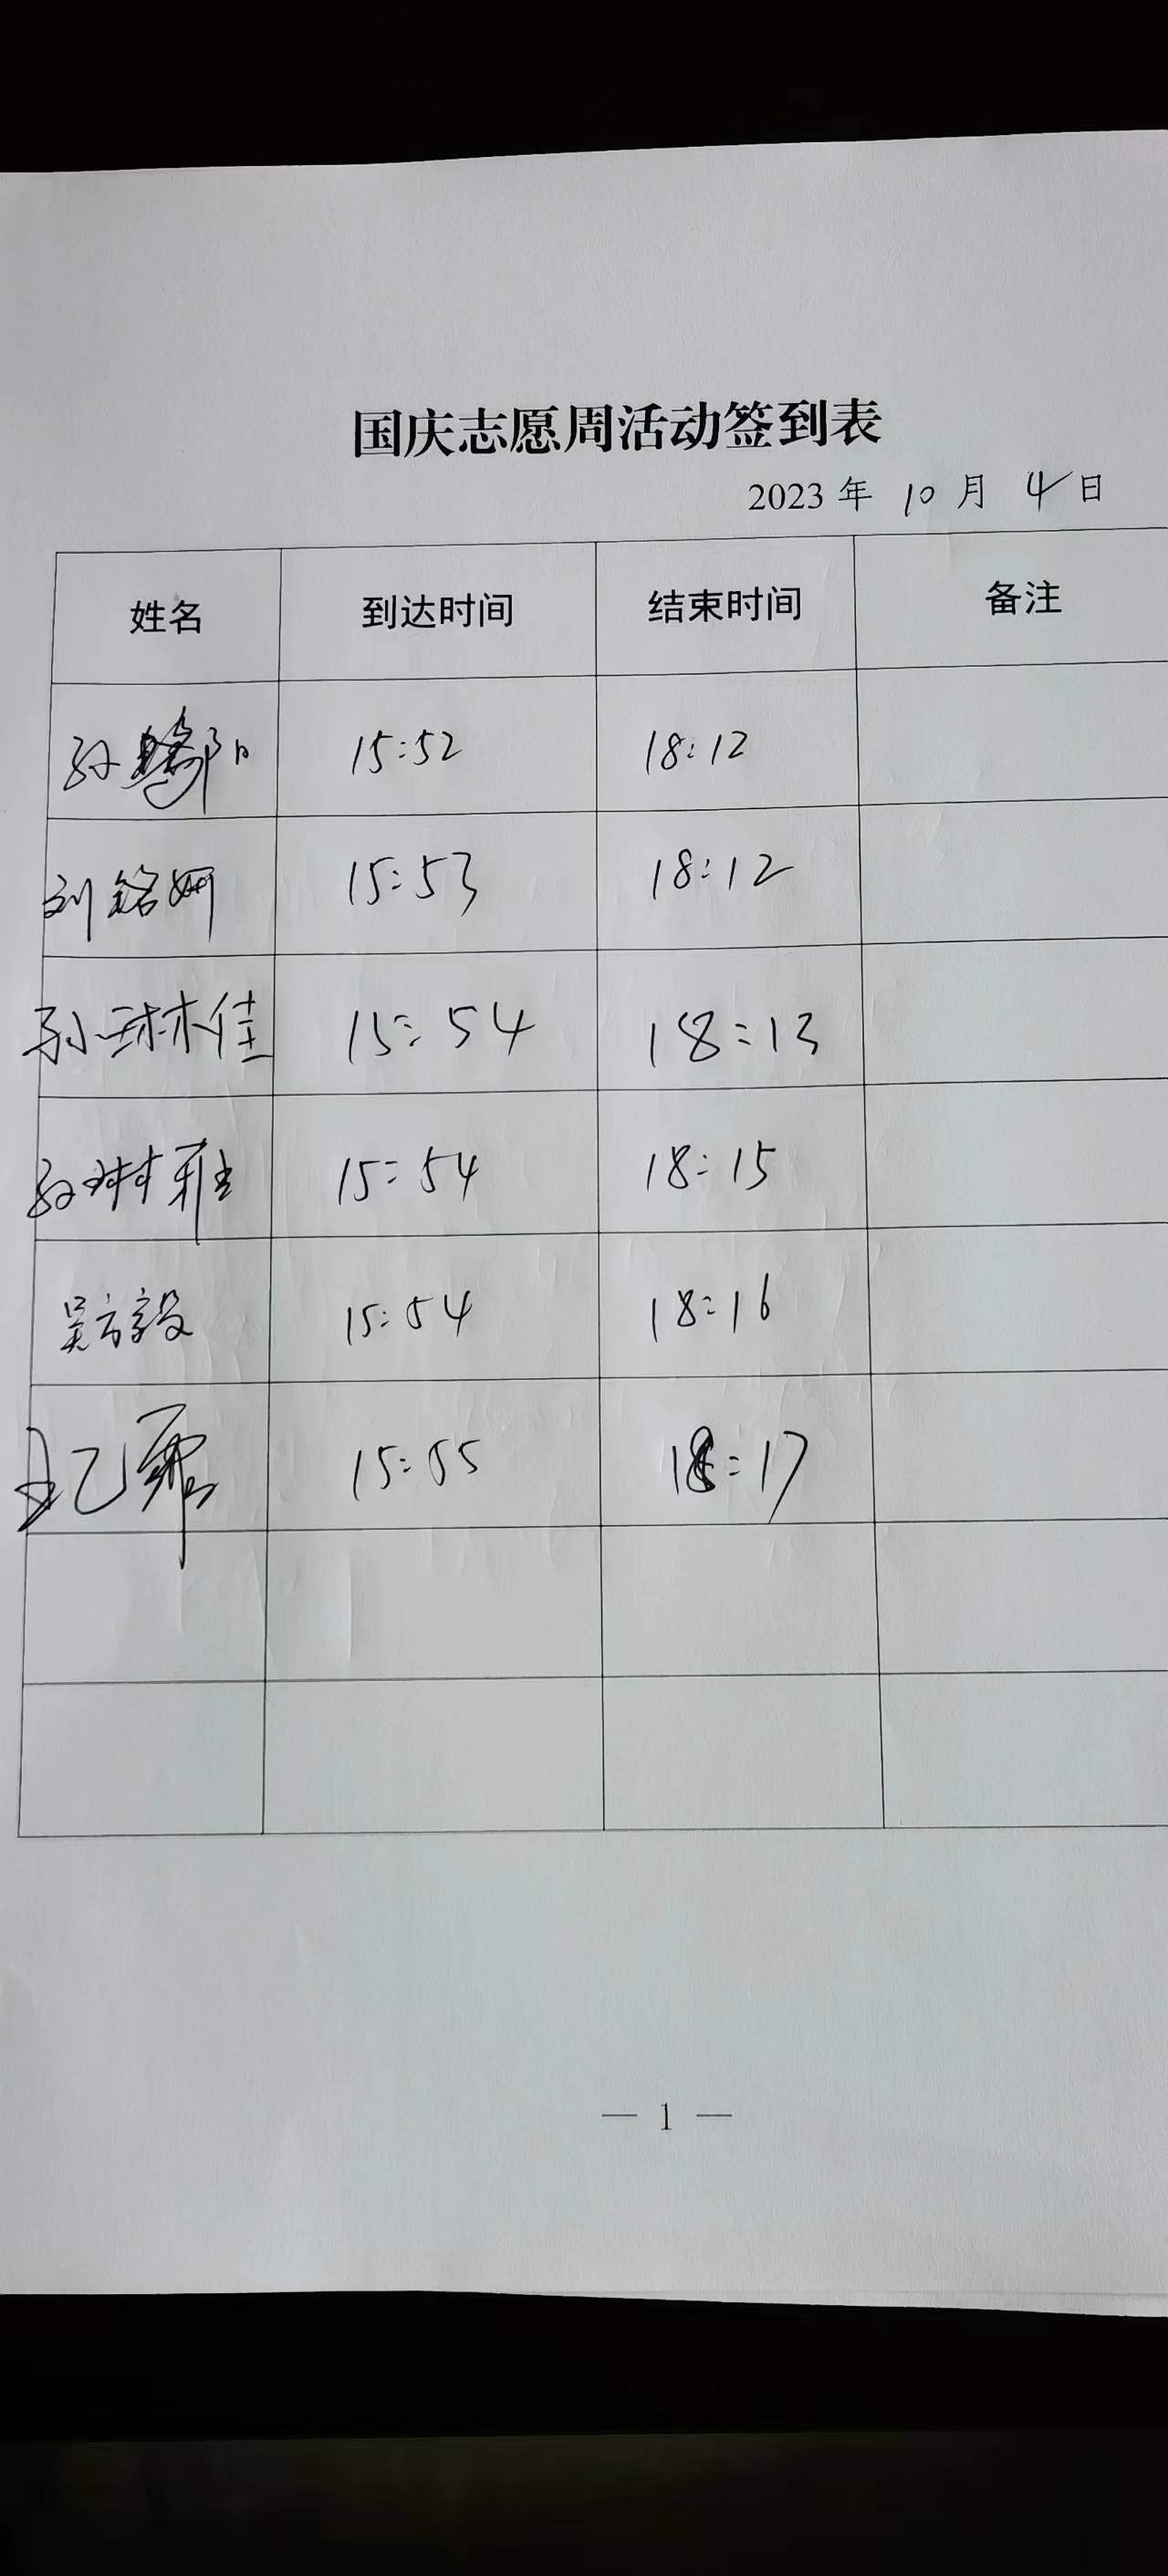 国庆志愿周活动签到表
2023 年 10 月 4 日
姓名 到达时间 结束时间 备注
孙 阳 15:52 18:12
刘铭姗 15:53 18:12
孙琳佳 15:54 18:13
孙琳雅 15:54 18:15
吴方毅 15:54 18:16
15:55 18:17
— 1 —